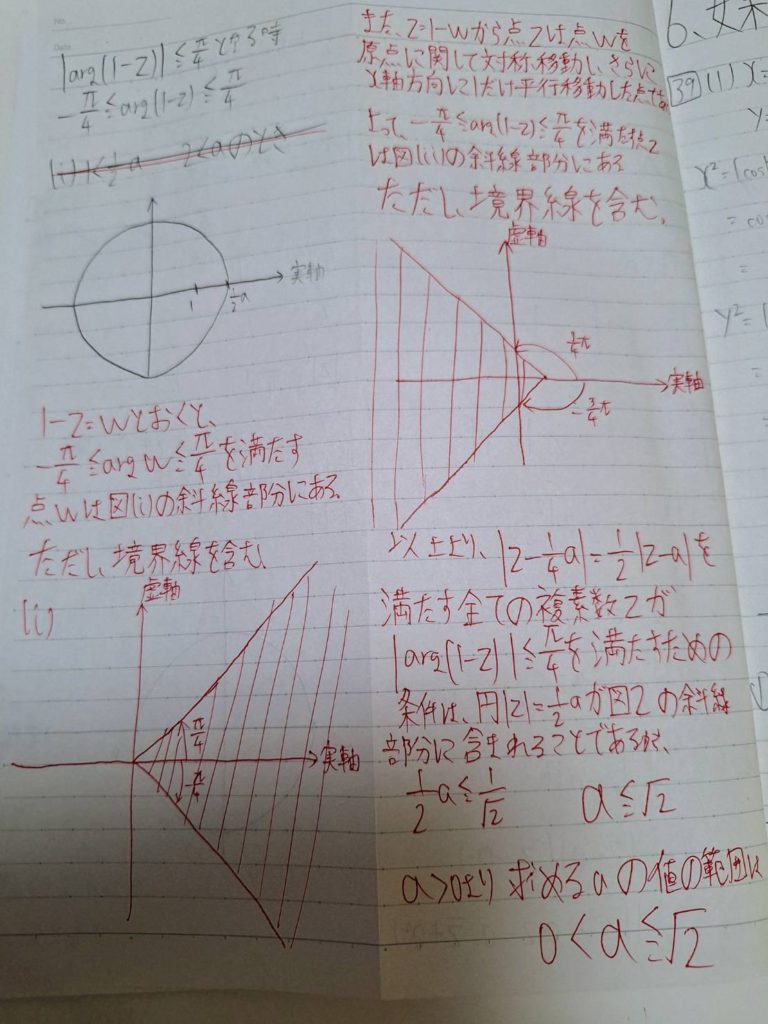 No.
Date
|arg(1-z)| ≦ π/4 となる時
-π/4 ≦ arg(1-z) ≦ π/4
(i) 1<1/2a 2<aのとき
実軸
1
1/2a
1-z=wとおくと、
-π/4 ≦ arg w ≦ π/4 を満たす
点wは図(i)の斜線部分にある
ただし境界線を含む
(i)
虚軸
π/4
実軸
-π/4
また、z=1-wから点zは点wを
原点に関して対称移動し、さらに
x軸方向に1だけ平行移動した点である
よって、-π/4 ≦ arg(1-z) ≦ π/4 を満たす点z
は図(ii)の斜線部分にある
ただし、境界線を含む。
虚軸
3/4π
実軸
-3/4π
以上より、|z-1/4a|=1/2|z-a| を
満たす全ての複素数zが
|arg(1-z)| ≦ π/4 を満たすための
条件は、円|z|=1/2aが図2の斜線
部分に含まれることであるから、
1/2a ≦ 1/√2 a ≦ √2
a>0より 求めるaの値の範囲は
0<a≦√2
6、
39 (1) x=
y=
x²=(cosh
= cos
=
y²=(
=